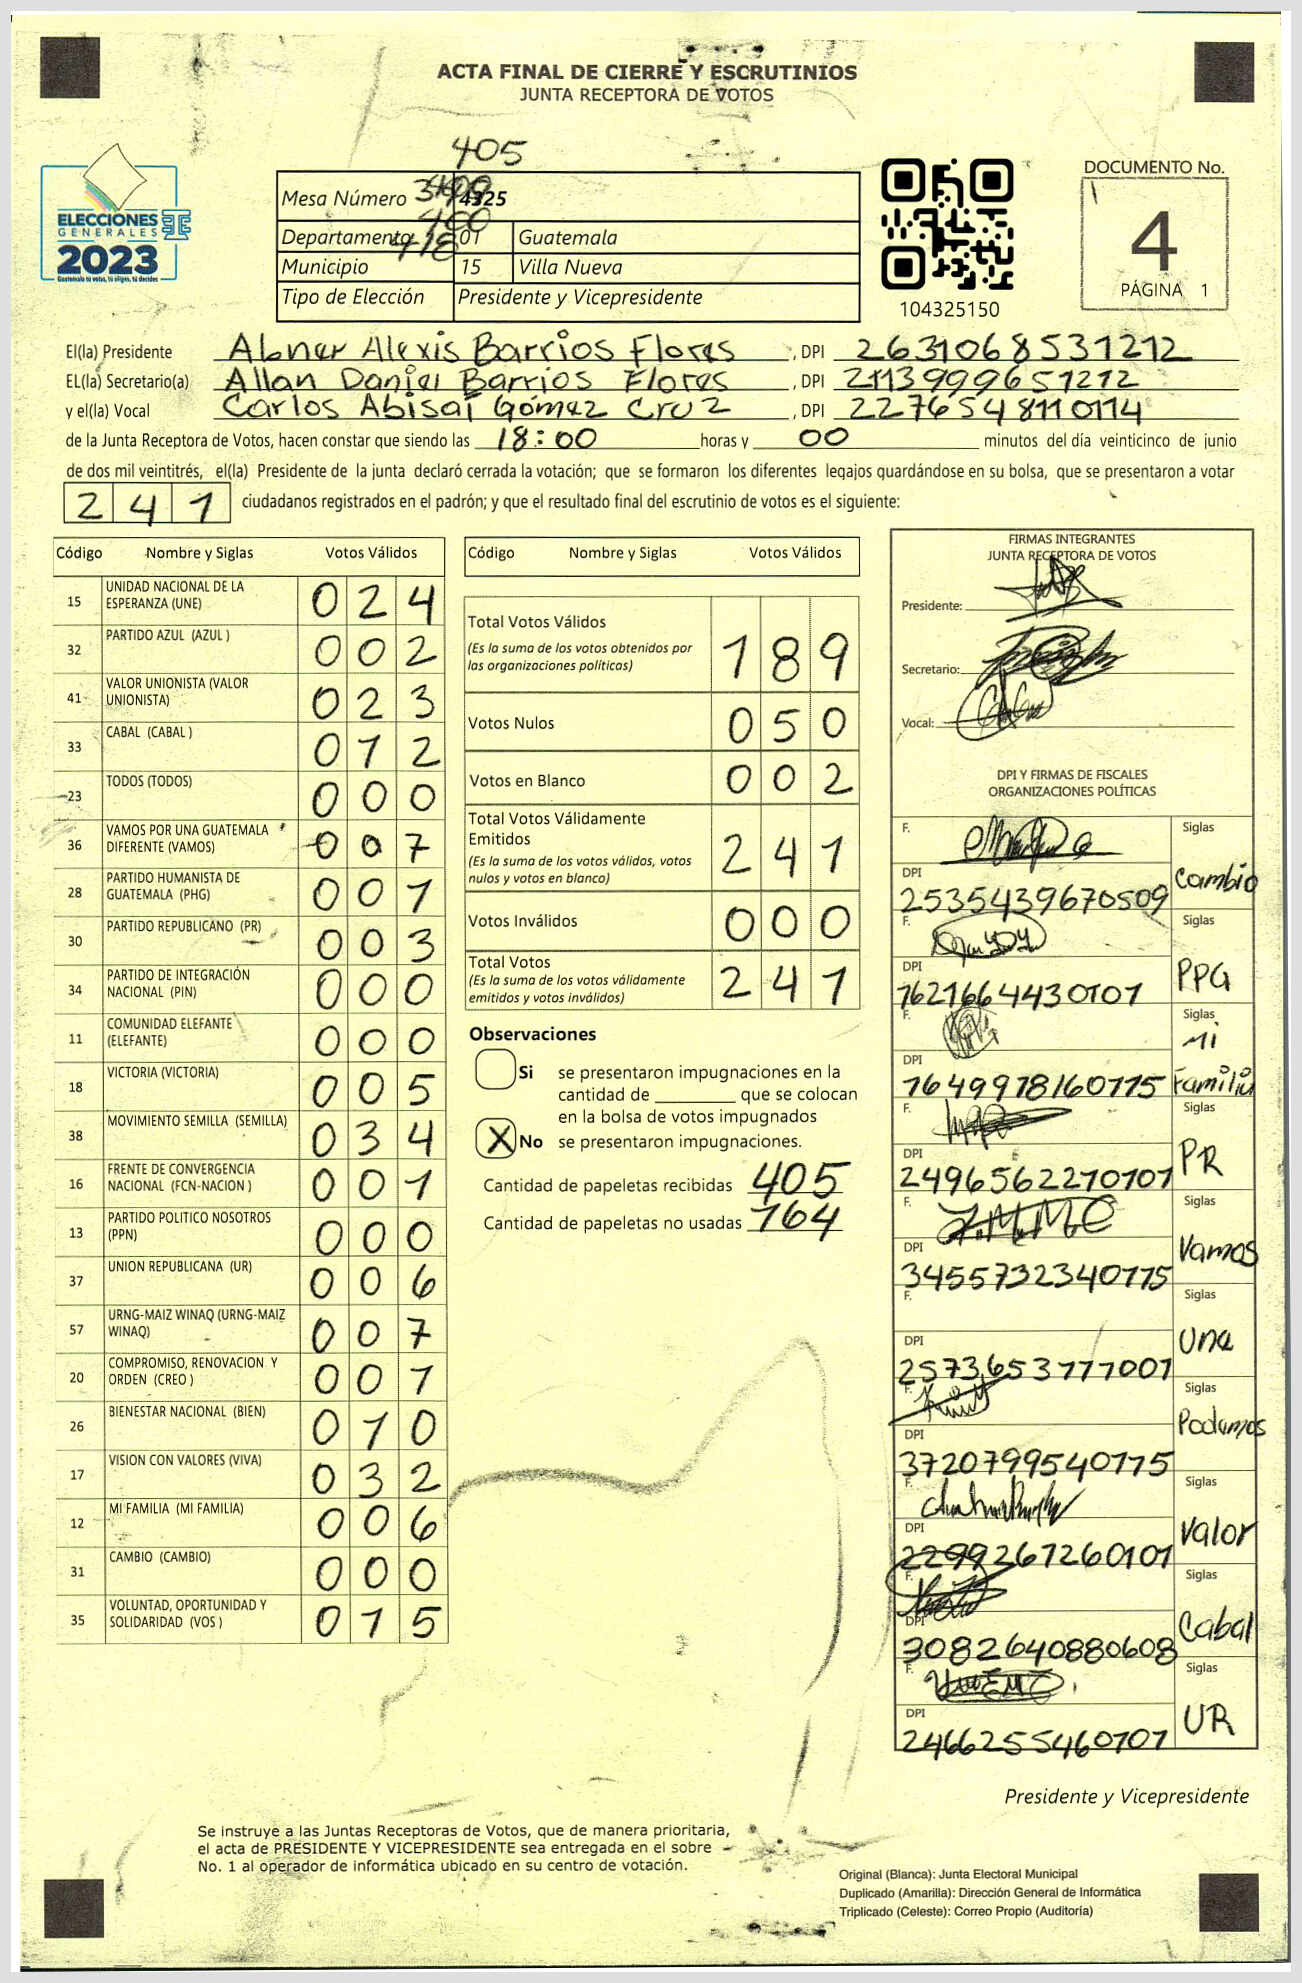 ACTA FINAL DE CIERRE Y ESCRUTINIOS
JUNTA RECEPTORA DE VOTOS
405
ELECCIONES
GENERALES
2023
Guatemala tu votas, tú eliges, tú decides
Mesa Número 4325
400
418
Departamento 01 Guatemala
Municipio 15 Villa Nueva
Tipo de Elección Presidente y Vicepresidente
104325150
DOCUMENTO No.
4
PÁGINA 1
El(la) Presidente Abner Alexis Barrios Flores, DPI 2631068531212
EL(la) Secretario(a) Allan Daniel Barrios Flores, DPI 2113999651212
y el(la) Vocal Carlos Abisaí Gómez Cruz, DPI 2276548110114
de la Junta Receptora de Votos, hacen constar que siendo las 18:00 horas y 00 minutos del día veinticinco de junio
de dos mil veintitrés, el(la) Presidente de la junta declaró cerrada la votación; que se formaron los diferentes legajos quardándose en su bolsa, que se presentaron a votar
241 ciudadanos registrados en el padrón; y que el resultado final del escrutinio de votos es el siguiente:
Código Nombre y Siglas Votos Válidos
15 UNIDAD NACIONAL DE LA ESPERANZA (UNE) 024
32 PARTIDO AZUL (AZUL ) 002
41 VALOR UNIONISTA (VALOR UNIONISTA) 023
33 CABAL (CABAL ) 012
23 TODOS (TODOS) 000
36 VAMOS POR UNA GUATEMALA DIFERENTE (VAMOS) 007
28 PARTIDO HUMANISTA DE GUATEMALA (PHG) 001
30 PARTIDO REPUBLICANO (PR) 003
34 PARTIDO DE INTEGRACIÓN NACIONAL (PIN) 000
11 COMUNIDAD ELEFANTE (ELEFANTE) 000
18 VICTORIA (VICTORIA) 005
38 MOVIMIENTO SEMILLA (SEMILLA) 034
16 FRENTE DE CONVERGENCIA NACIONAL (FCN-NACION ) 001
13 PARTIDO POLITICO NOSOTROS (PPN) 000
37 UNION REPUBLICANA (UR) 006
57 URNG-MAIZ WINAQ (URNG-MAIZ WINAQ) 007
20 COMPROMISO, RENOVACION Y ORDEN (CREO ) 001
26 BIENESTAR NACIONAL (BIEN) 010
17 VISION CON VALORES (VIVA) 032
12 MI FAMILIA (MI FAMILIA) 006
31 CAMBIO (CAMBIO) 000
35 VOLUNTAD, OPORTUNIDAD Y SOLIDARIDAD (VOS ) 015
Código Nombre y Siglas Votos Válidos
Total Votos Válidos 189
(Es la suma de los votos obtenidos por
las organizaciones políticas)
Votos Nulos 050
Votos en Blanco 002
Total Votos Válidamente
Emitidos 241
(Es la suma de los votos válidos, votos
nulos y votos en blanco)
Votos Inválidos 000
Total Votos 241
(Es la suma de los votos válidamente
emitidos y votos inválidos)
Observaciones
Si se presentaron impugnaciones en la
cantidad de ________ que se colocan
en la bolsa de votos impugnados
X No se presentaron impugnaciones.
Cantidad de papeletas recibidas 405
Cantidad de papeletas no usadas 164
FIRMAS INTEGRANTES
JUNTA RECEPTORA DE VOTOS
Presidente:
Secretario:
Vocal:
DPI Y FIRMAS DE FISCALES
ORGANIZACIONES POLÍTICAS
F. Siglas
DPI Cambio
2535439670509
F. Siglas
DPI PPG
1621664430101
F. Siglas
DPI Mi Familia
1649978160115
F. Siglas
DPI PR
2496562270101
F. Siglas
DPI Vamos
3455732340115
F. Siglas
DPI Une
2573653771001
F. Siglas
DPI Podemos
3720799540115
F. Siglas
DPI Valor
2299267260101
F. Siglas
DPI Cabal
3082640880608
F. Siglas
DPI UR
2466255460101
Presidente y Vicepresidente
Se instruye a las Juntas Receptoras de Votos, que de manera prioritaria,
el acta de PRESIDENTE Y VICEPRESIDENTE sea entregada en el sobre
No. 1 al operador de informática ubicado en su centro de votación.
Original (Blanca): Junta Electoral Municipal
Duplicado (Amarilla): Dirección General de Informática
Triplicado (Celeste): Correo Propio (Auditoría)